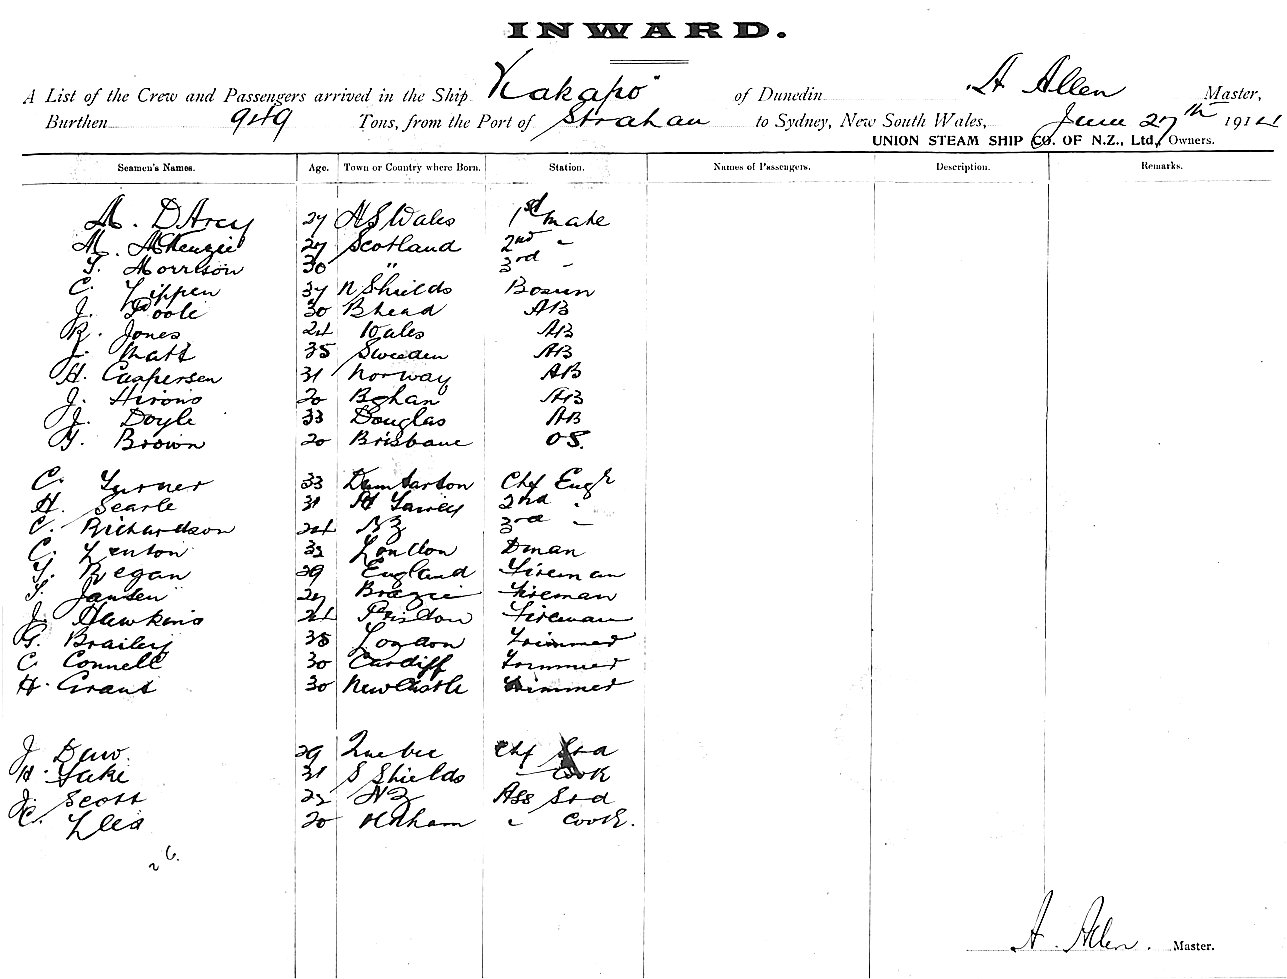 INWARD.
A List of the Crew and Passengers arrived in the Ship Kakapo of Dunedin A Allen Master,
Burthen 949 Tons, from the Port of Strahan to Sydney, New South Wales, June 27th 191
UNION STEAM SHIP CO. OF N.Z., Ltd, Owners.
Seamen's Names. Age. Town or Country where Born. Station. Names of Passengers. Description. Remarks.
D'Arcy 27 N S Wales 1st mate
M. McKenzie 27 Scotland 2nd "
T. Morrison 30 " 3rd "
C. Lippen 37 N Shields Bosun
J. Poole 30 B head AB
R. Jones 24 Wales AB
J. Matt 35 Sweden AB
H. Caspersen 31 Norway AB
J. Hirons 20 B ham AB
J. Doyle 33 Douglas AB
G. Brown 20 Brisbane OS.
C. Turner 33 Dumbarton Chf Engr
H. Searle 31 2nd "
C. Richardson 24 NZ 3rd "
C. Lenton 32 London Dman
T. Regan 29 England Fireman
Jansen 27 Fireman
J. Hawkins 24 Fireman
G. Brailey 38 London Trimmer
C. Connell 30 Cardiff Trimmer
H. Grant 30 Newcastle Trimmer
J Daw. 29 Quebec Chf Std
H. Lake 31 S Shields " Cook
J. Scott 22 NZ Ass Std
C. Lea 20 Oldham " Cook.
26.
A. Allen. Master.